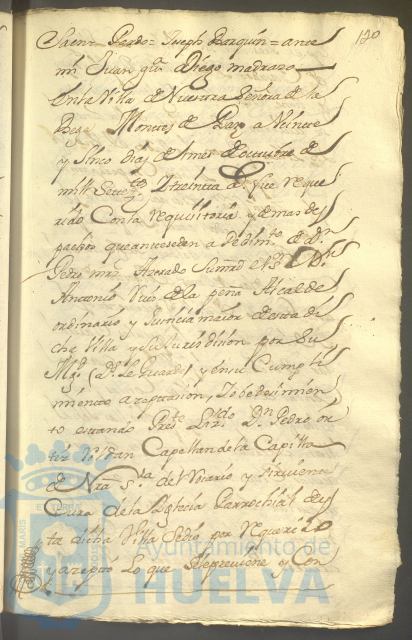 120
Saenz Pardo = Joseph Barquin = ante
mi Juan Diego madrazo
En la Villa de Nuestra Señora de la
Bega Montes de Paz a Veinte
y Sinco dias del mes de octubre de
mill Setez.tos Y treinta
rido Con la requisitoria y demas des
pachos que anteseden a Pedim.to de D.n
Pedro mrñ Alvarado Su md el S.r D.n
Antonio Ruis de la peña Alcalde
ordinario y Justicia maior desta di
cha Villa y Su Jurisdision por Su
Mg.d (D.s Le Guarde) y en su Cumpli
miento aseptasion, y obedesimien
to estando Press.te D.n Pedro or
tiz Capellan de la Capilla
de Nra S.ra del Rosario y
Cura de la Yglesia Parrochial des
ta dicha Villa Se dio por requerido
y azepto Lo que Se previene y Con
Ayuntamiento de
HUELVA